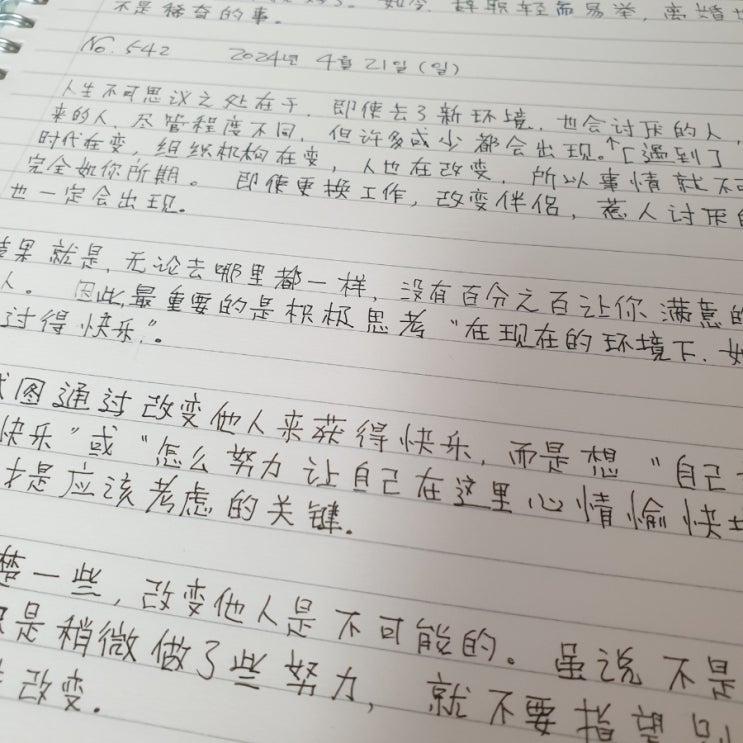 如今，辞职轻而易举，离婚
不是稀奇的事。
No. 542 2024年 4月21日(日)
人生不可思议之处在于，即使去了新环境，也会讨厌的人，
来的人，尽管程度不同，但许多或少都会出现。↑「遇到了
时代在变，组织机构在变，人也在改变，所以事情就不可
完全如你所期。即使更换工作，改变伴侣，惹人讨厌的
也一定会出现。
果就是，无论去哪里都一样，没有百分之百让你满意的
人。因此最重要的是积极思考“在现在的环境下，如
过得快乐”。
试图通过改变他人来获得快乐，而是想“自己
快乐”或“怎么努力让自己在这里心情愉快
才是应该考虑的关键。
楚一些，改变他人是不可能的。虽说不是
是稍微做了些努力，就不要指望别
改变。